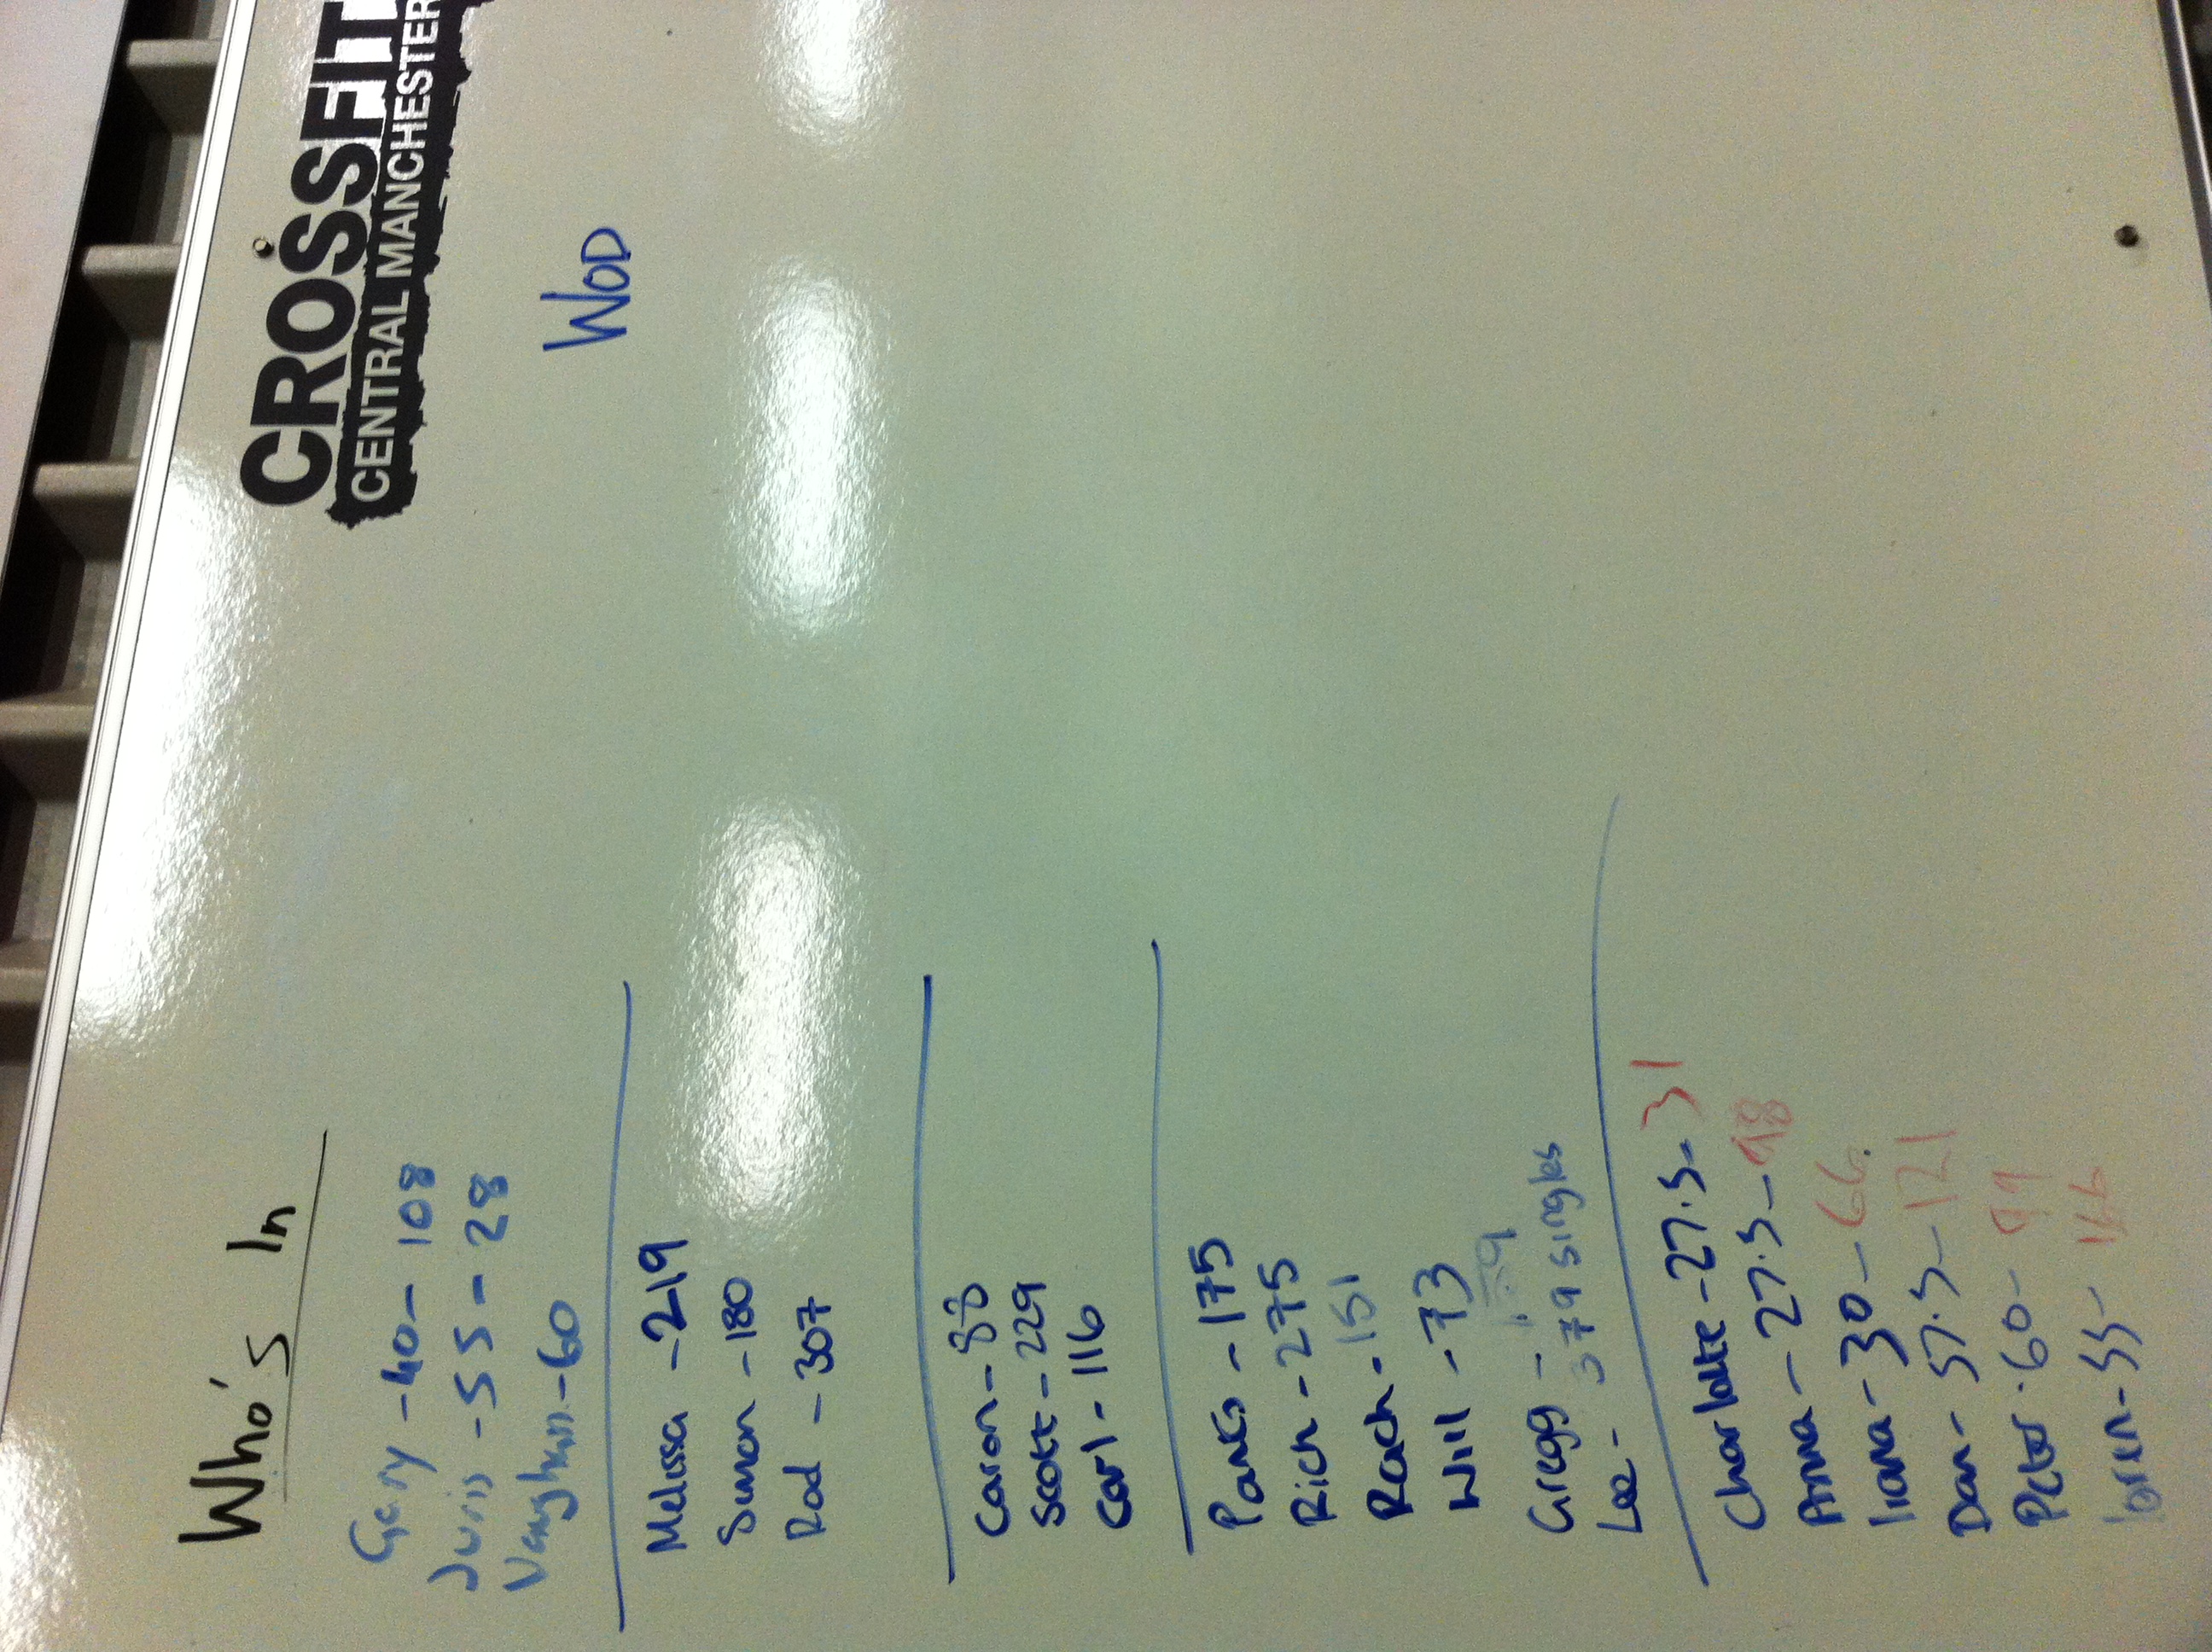 CROSSFIT
CENTRAL MANCHESTER
Who's In
WOD
Gary - 40 - 108
Juris - 55 - 28
Vaughan - 60
Melissa - 219
Simon - 180
Rod - 307
Caron - 88
Scott - 229
Carl - 116
Parks - 175
Rich - 275
Rach - 151
Will - 73
Gregg -
Lee - 379 singles
Charlotte - 27.5 - 31
Anna - 27.5 - 98
Irana - 30 - 66
Dan - 57.5 - 121
Peter - 60 - 99
- 55 -